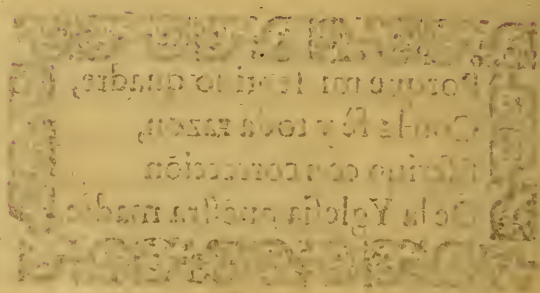 Porque mi quadre,
Con la fè y toda razon,
con correccion
De la Ygleſia nueſtra madre.